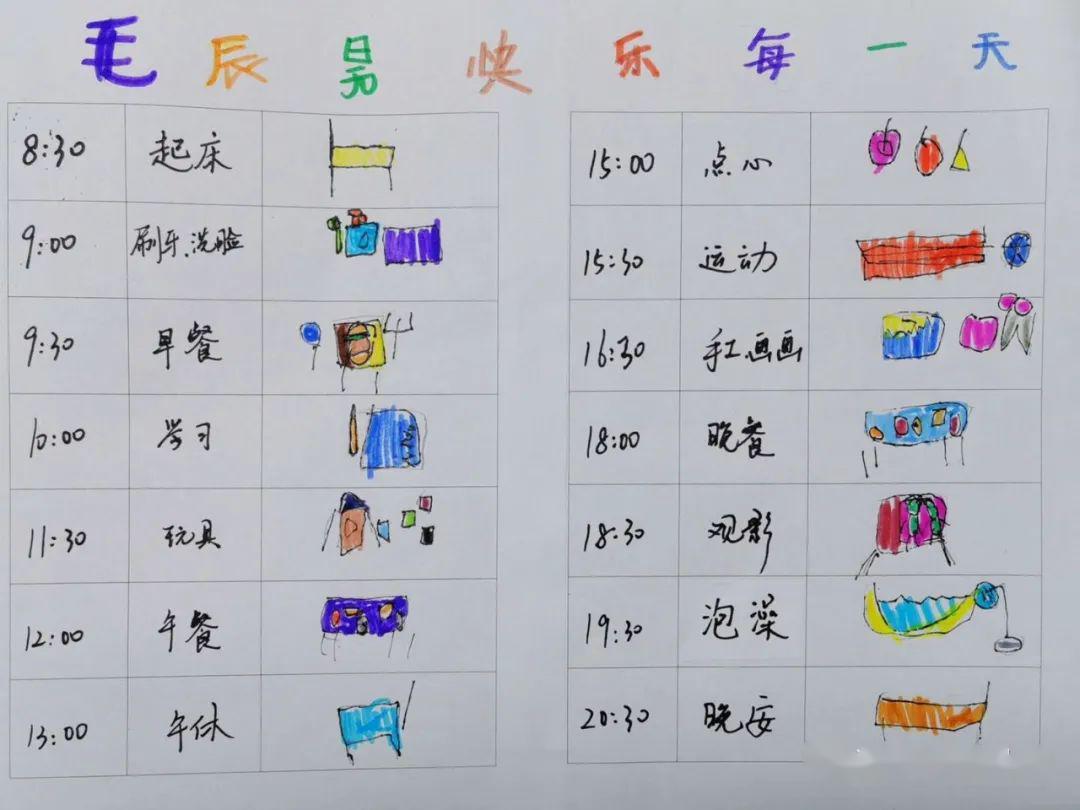 毛辰 快乐每一天
8:30 起床
9:00 刷牙、洗脸
9:30 早餐
10:00 学习
11:30 玩具
12:00 午餐
13:00 午休
15:00 点心
15:30 运动
16:30 手工、画画
18:00 晚餐
18:30 观影
19:30 泡澡
20:30 晚安